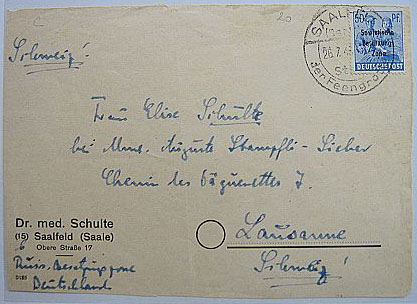 20
Schweiz!
SAALFELD
26.7.48
der Feengrotten
50 Pf.
Sowjetische
Besatzung
Zone
DEUTSCHE POST
Frau Elise Schulte
bei Mme. Auguste Stampfli-Sieber
Chemin des Pâquerettes 7.
Lausanne
Schweiz!
Dr. med. Schulte
(15) Saalfeld (Saale)
Obere Straße 17
Russ. Besatzungszone
Deutschland